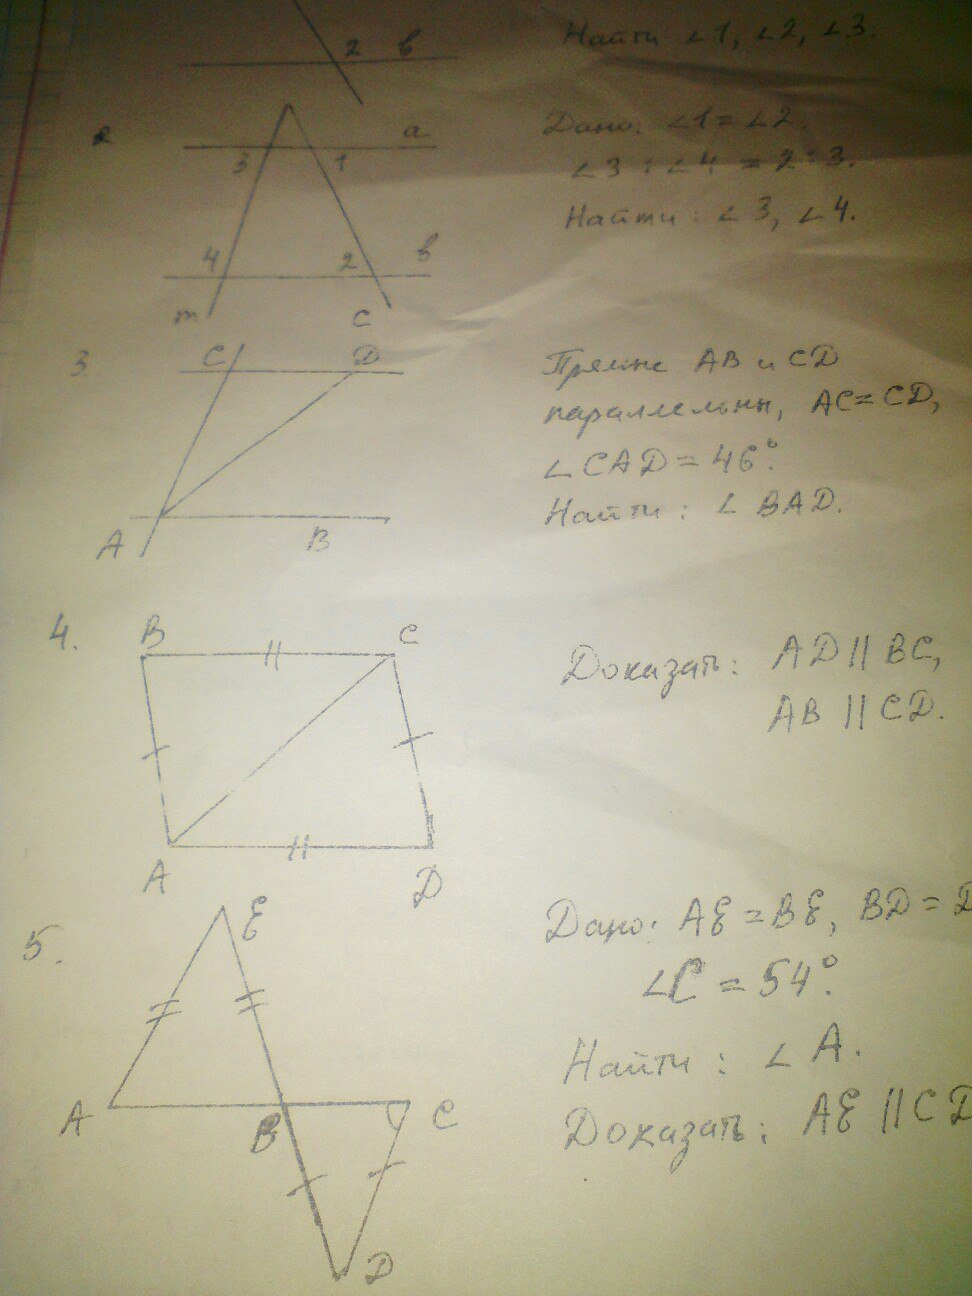 2 в
Найти ∠1, ∠2, ∠3.
2
a
3 1
4 2 в
m c
Дано: ∠1=∠2.
∠3 : ∠4 = 2 : 3.
Найти : ∠3, ∠4.
3
C D
A B
Прямые AB и CD
параллельны, AC=CD,
∠CAD=46°.
Найти : ∠BAD.
4.
B C
A D
Доказать: AD || BC,
AB || CD.
5.
E
A B C
D
Дано: AE=BE, BD=D
∠C = 54°.
Найти : ∠A.
Доказать: AE || CD